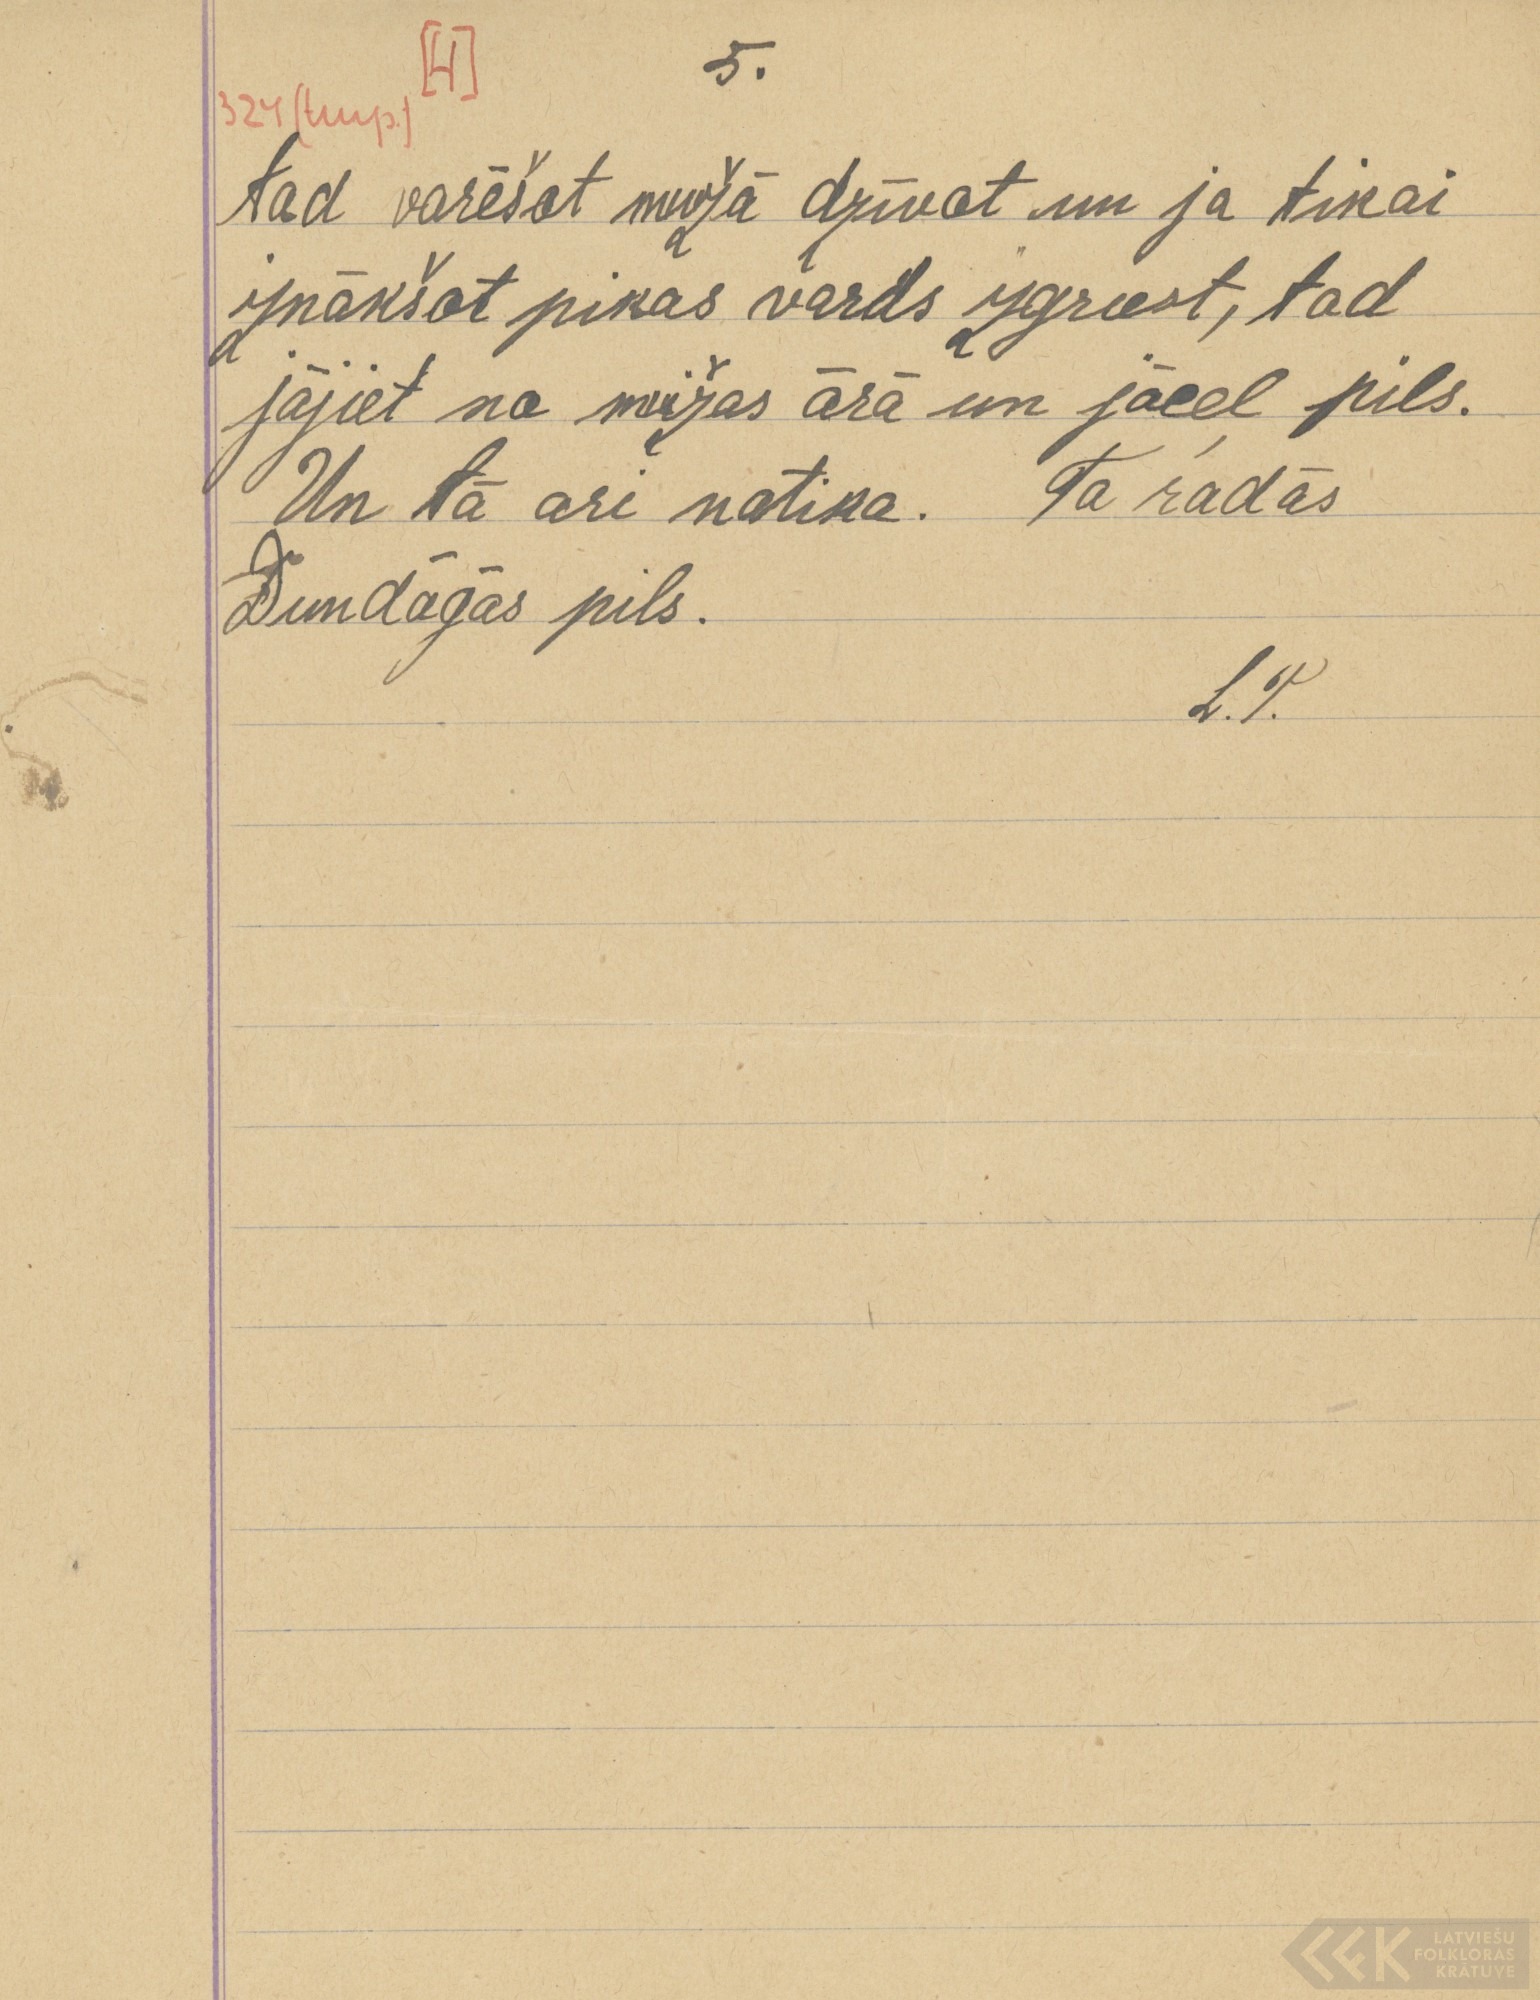 [4]
5.
324 (turp.)
tad varēšot muižā dzīvot un ja tikai
iznākšot pikas vards izgriest, tad
jājiet no muižas ārā un jācel pils.
Un tā ari notika. Ta radās
Dundāgās pils.
L.T.
LATVIEŠU
FOLKLORAS
KRĀTUVE